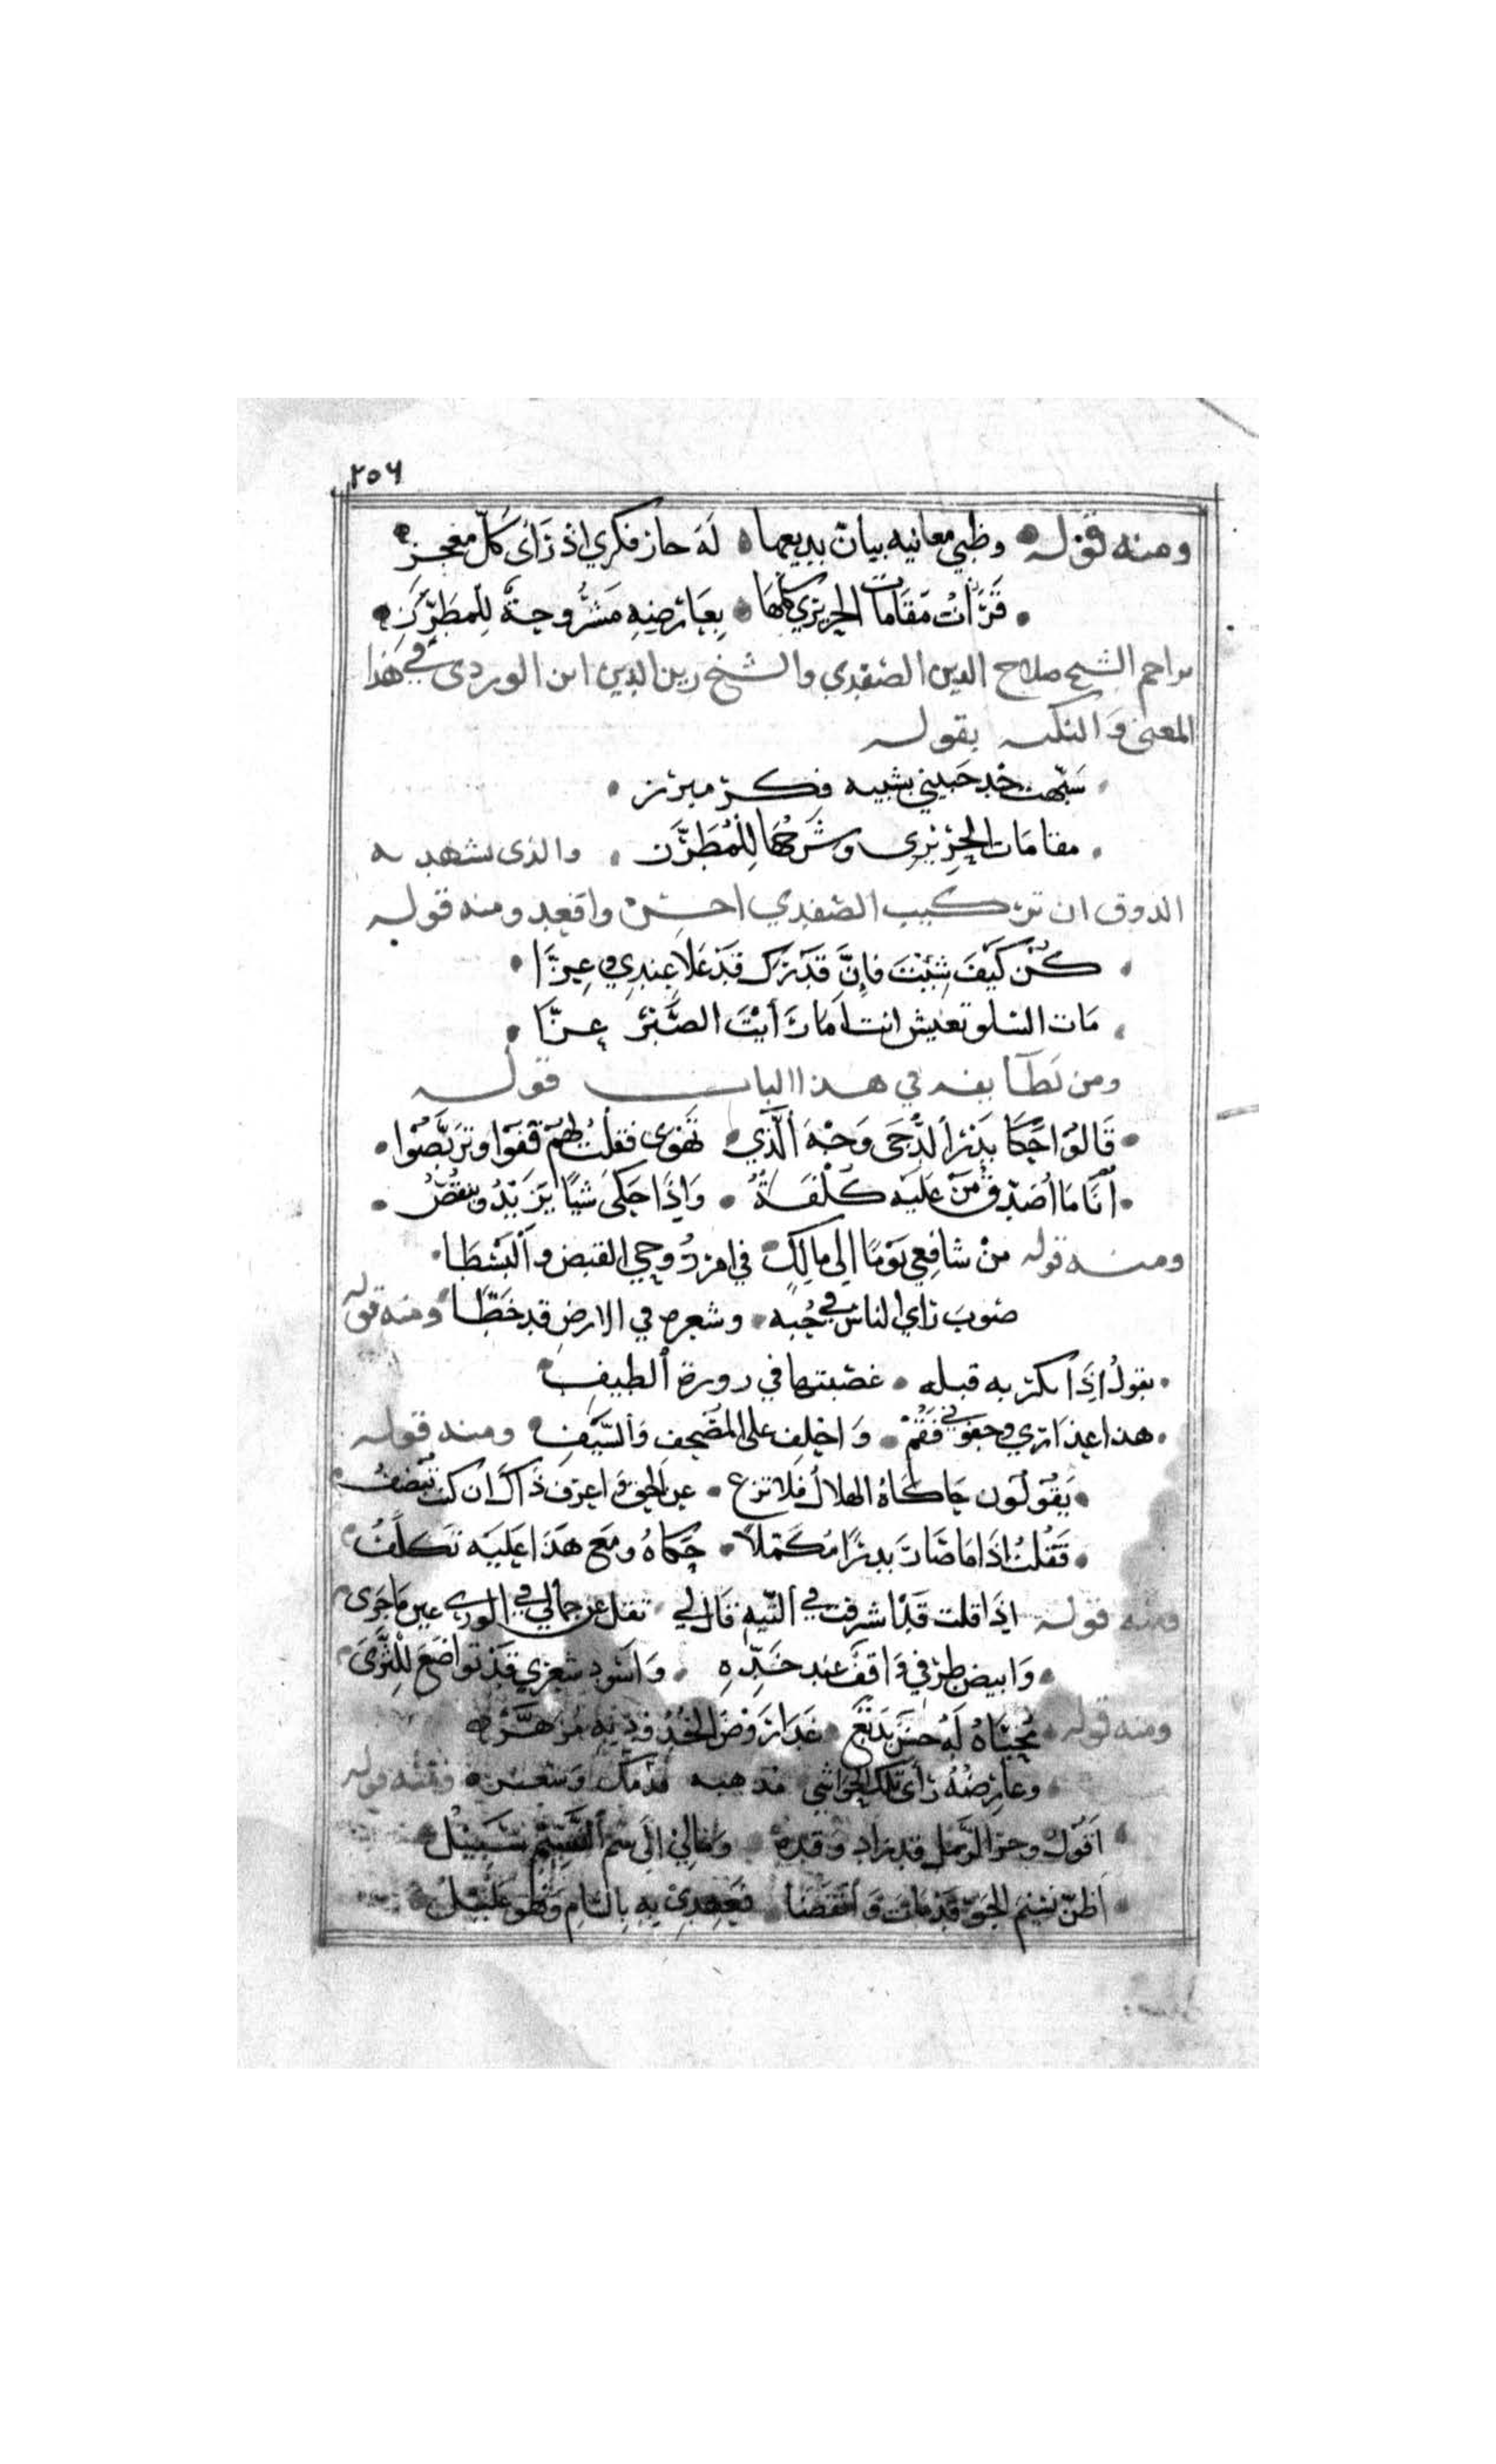 ٢٥٦
ومنه قوله وظبي معانيه بيان بديعها له حاز فكري اذ رَاى كلّ معجز
قرَّات مَقَامات الحريري كلّهَا بعَارضِيهِ مَشرُوحة للمطرّزِ
تزاحم الشيخ صلاح الدين الصفدي والشيخ زين الدين ابن الوردى في هَذا
المعنى وَالنكته بقوله
شبّهت خد حبيبي بشبيه فكر مبرز
مقامَات الحريرى وشَرحُهَا للمُطَرّز والذى يشهد به
الذوق ان تركيب الصفدي احسن واقعد ومنه قوله
كُنْ كَيْفَ شِئتَ فاِنَّ قَدرَك قدْ عَلا عِندِي وعِزّا
مَات السلو تعيش انت اما رَأيْتَ الصَّبْرَ عزّا
ومن لطَآيفه في هذا الباب قوله
قَالوُا حَكَا بَدْرُ الدُّجَى وَجْهَ الَّذي تَهْوَى فقلتُ لهُمْ قفوْا وتربَّصُوْا
اَنَا مَا اُصَدّقُ مَنْ عَليْه كُلْفَةٌ وَاِذَا حَكى شيًا يَزيْدُ وينقصُ
ومنه قوله مِنْ شافِعِي يَوْمًا اِلى مالِكٍ في امر رُوحِي القبض وَالبَسْطَا
صَوبَ رَاي الناس في حُبِه وشعره في الارض قد خَطّا ومنه قوله
يقولُ اِذَا بكر به قبله غصَبتها في زورة الطيفِ
هذا عِذاري وجفوني فَقُمْ وَاحْلِف على المصْحف وَالسَّيْفِ ومنه قوله
يَقُولُون حَاكَاهُ الهلالُ فلا تزع عن الحق وَاعرف ذَاكَ ان كنت تُنصفُ
فَقُلتُ اِذَا مَا صَارَ بدرًا مُكَمّلاً حَكاهُ ومَع هَذَا عَليْه تكلّفُ
ومنه قوله اِذَا قلت قَدْ اشرفت في التّيهِ قال لي تقل عن جمالي في الورى عين مَا جَرى
وَابيض طرْفي وَاقفٌ عند خَدِّهِ وَاسْود شعري قَدْ تواضَع للثَّرى
ومنه قوله مُحيَّاهُ لَهُ حسْنٌ بَديْعٌ غَدا رَوْضُ الخُدُوْدِ بِهِ مُزهّرْ
وعارِضُهُ رَأى تلك الحَوَاشي مذهبه ومنه قوله
اَقُولُ وحَرّ الرّمل قد زاد وَقدهُ وَمَالِي اِلَى شم النَّسِيْمِ سَبيْلُ
اَظنّ نَسْيمَ الجَوّ قَدْ مَاتَ وَانْقَضَا فَعَهْدِيْ بِهِ بِالشامِ وَهْوَ عَليْلُ